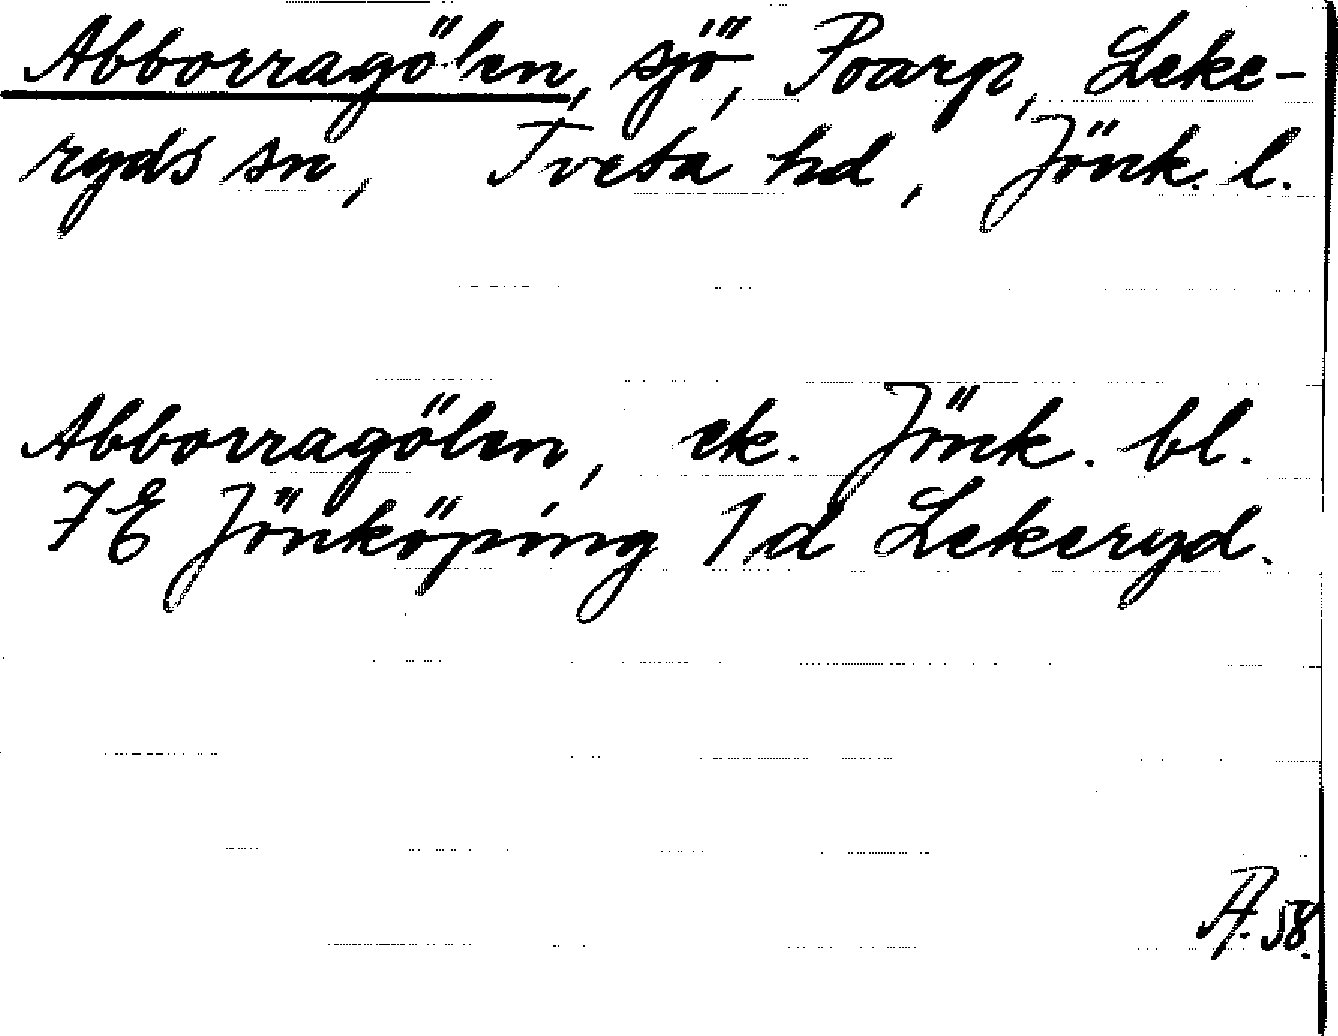 Abborragölen, sjö, Poarp, Leke-
ryds sn, Tveta hd, Jönk. l.
Abborragölen, ek. Jönk. bl.
7E Jönköping 1d Lekeryd.
58.